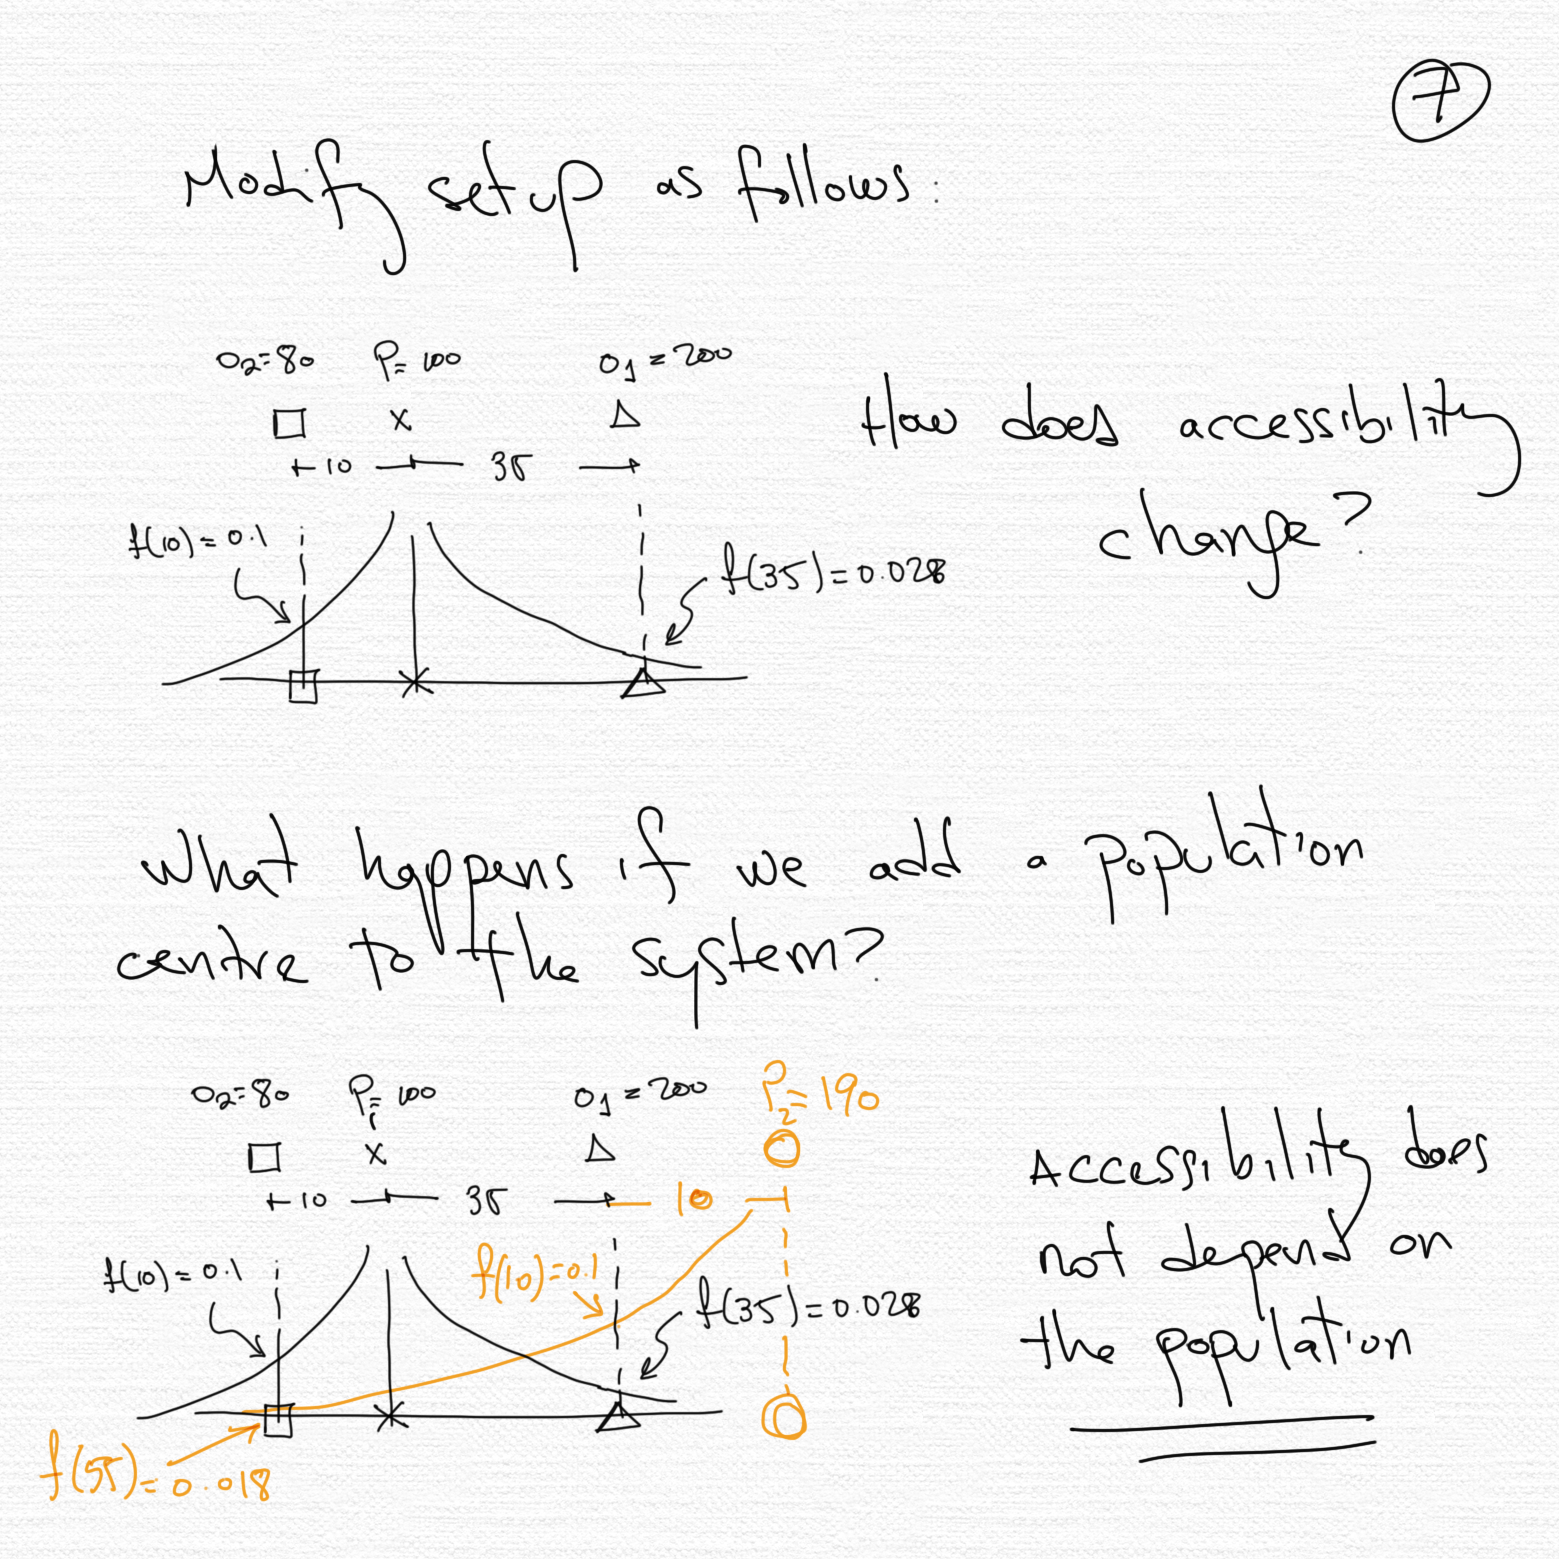 7
Modify setup as follows:
O2=80 P=100 O1=200
10 35
f(10)=0.1
f(35)=0.028
How does accessibility
change?
What happens if we add a population
centre to the system?
O2=80 P1=100 O1=200 P2=190
10 35 10
f(10)=0.1
f(10)=0.1
f(35)=0.028
f(55)=0.018
Accessibility does
not depend on
the population